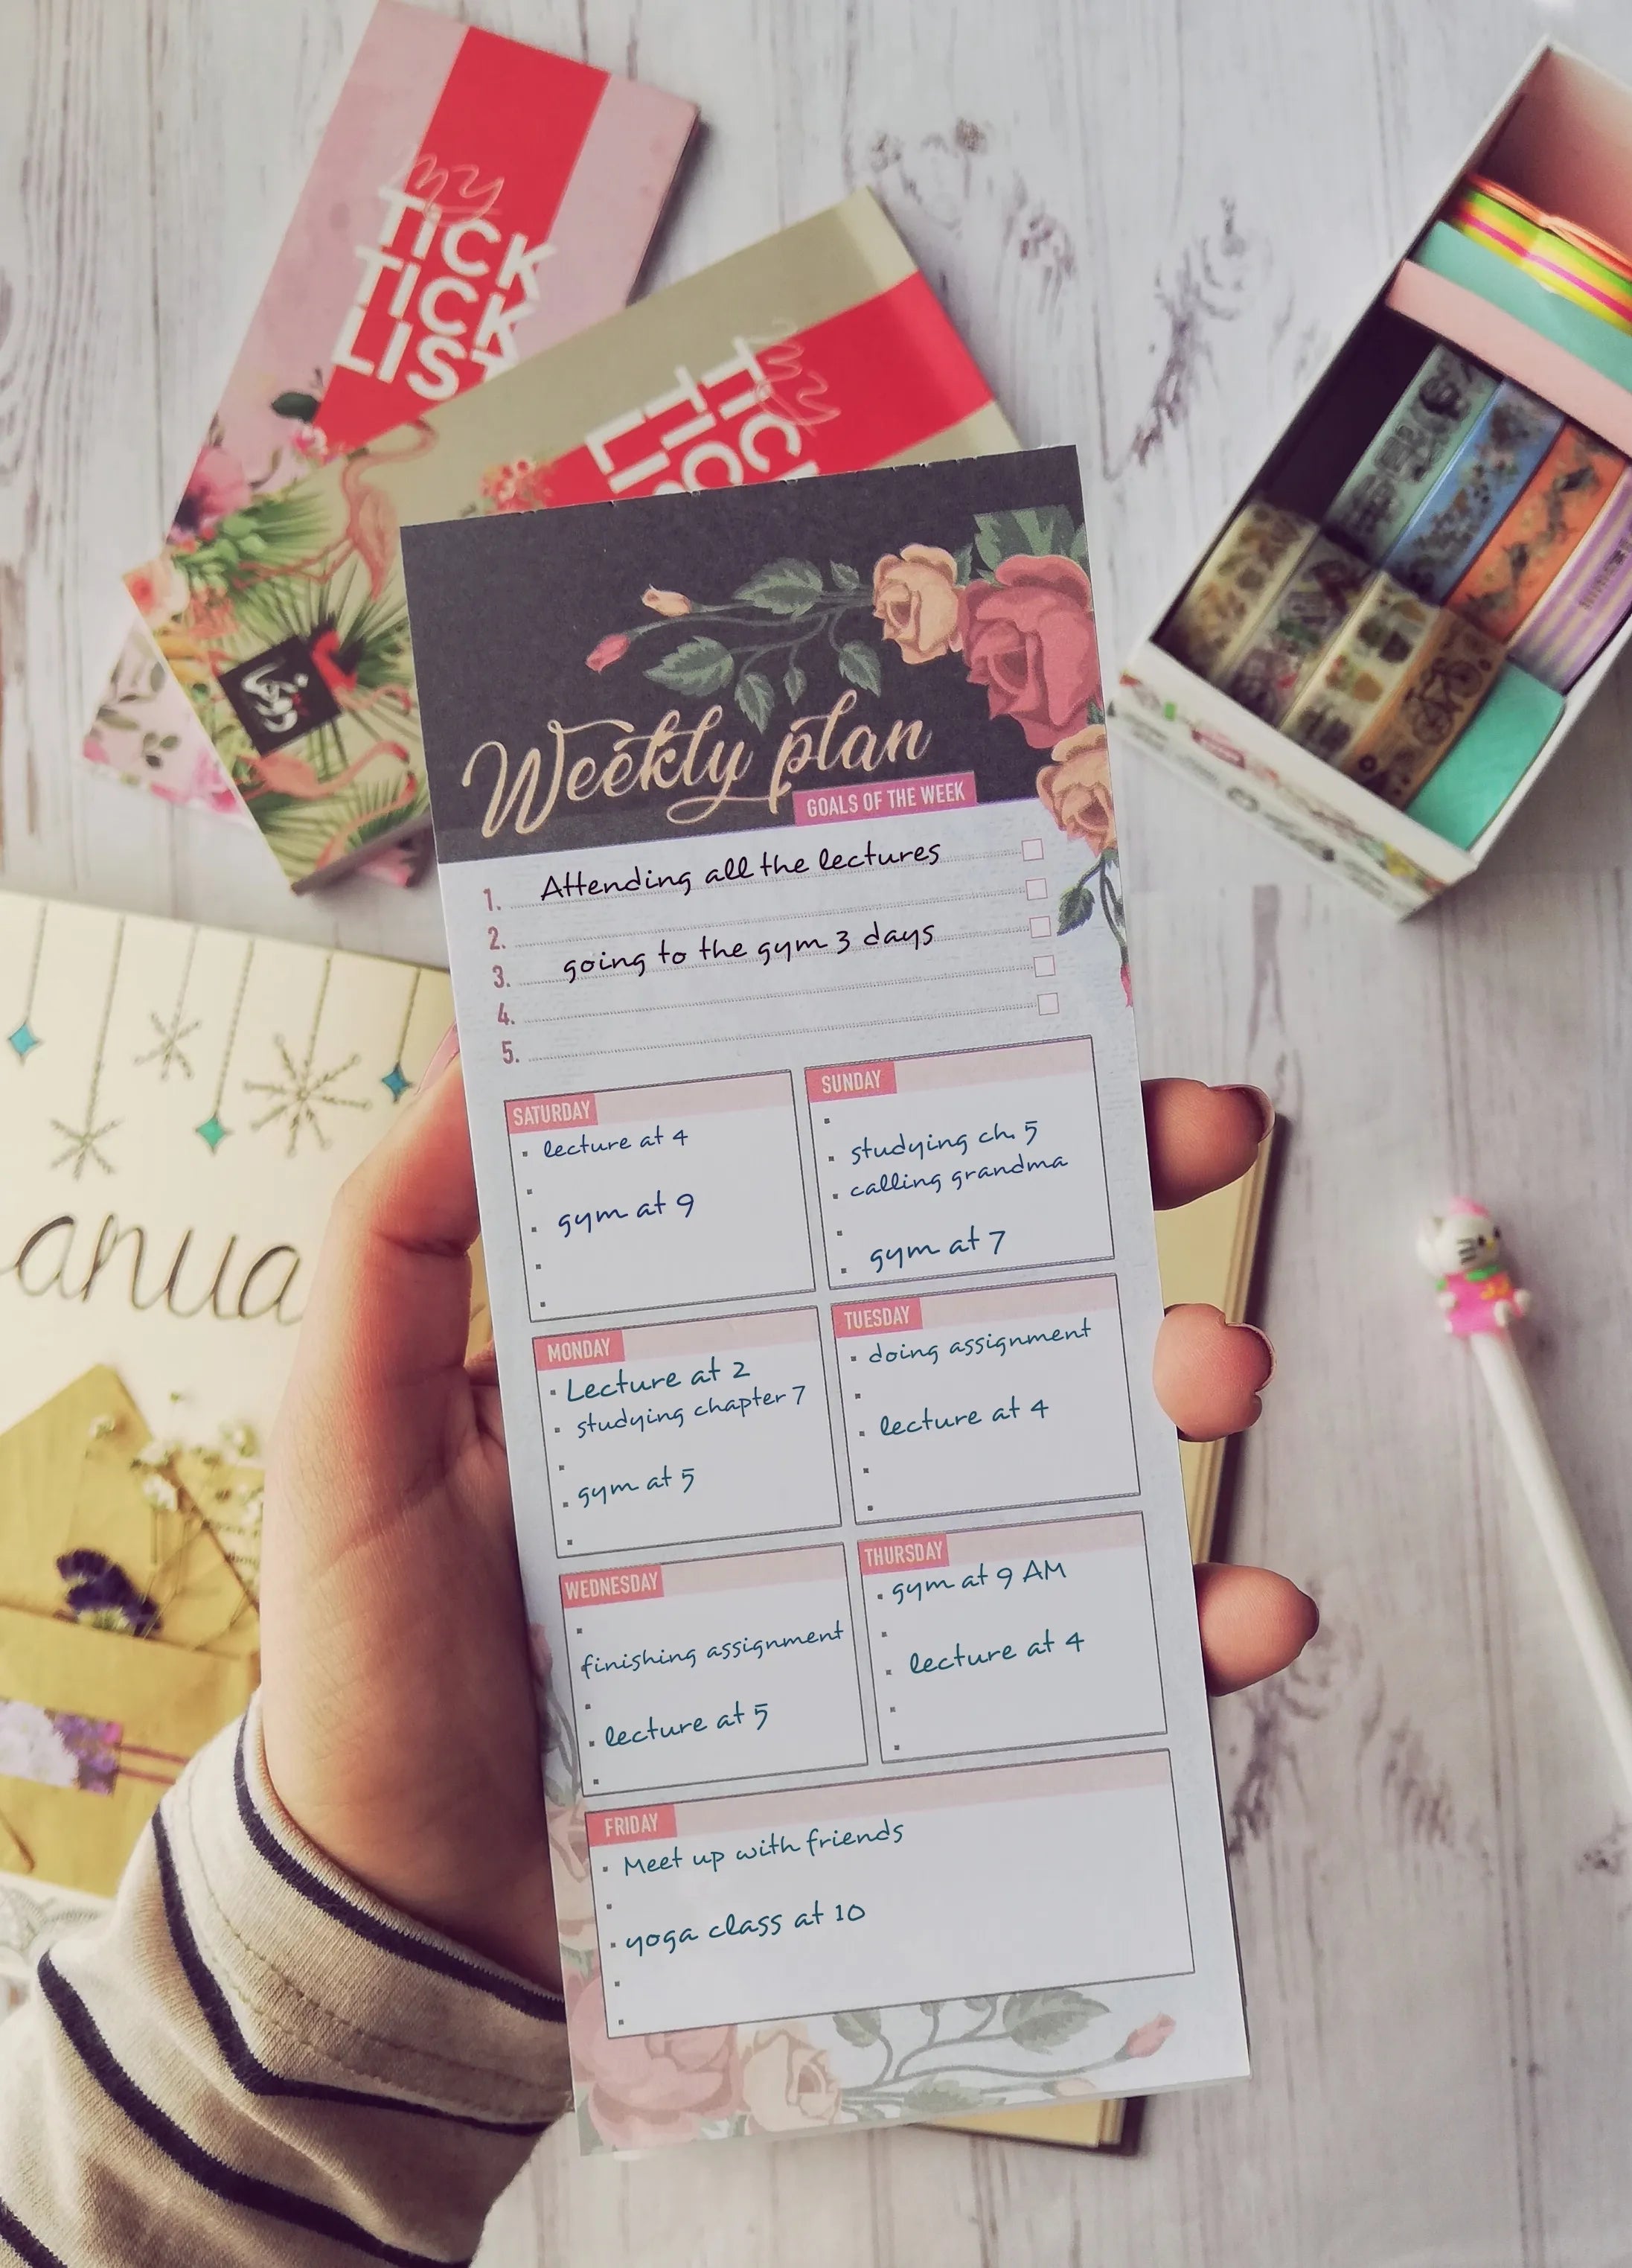 my
TICK
TICK
LIST
my
TICK
TICK
LIS
Weekly plan
GOALS OF THE WEEK
1. Attending all the lectures
2.
3. going to the gym 3 days
4.
5.
SATURDAY
lecture at 4
gym at 9
SUNDAY
studying ch. 5
calling grandma
gym at 7
MONDAY
Lecture at 2
studying chapter 7
gym at 5
TUESDAY
doing assignment
lecture at 4
WEDNESDAY
finishing assignment
lecture at 5
THURSDAY
gym at 9 AM
lecture at 4
FRIDAY
Meet up with friends
yoga class at 10
anua